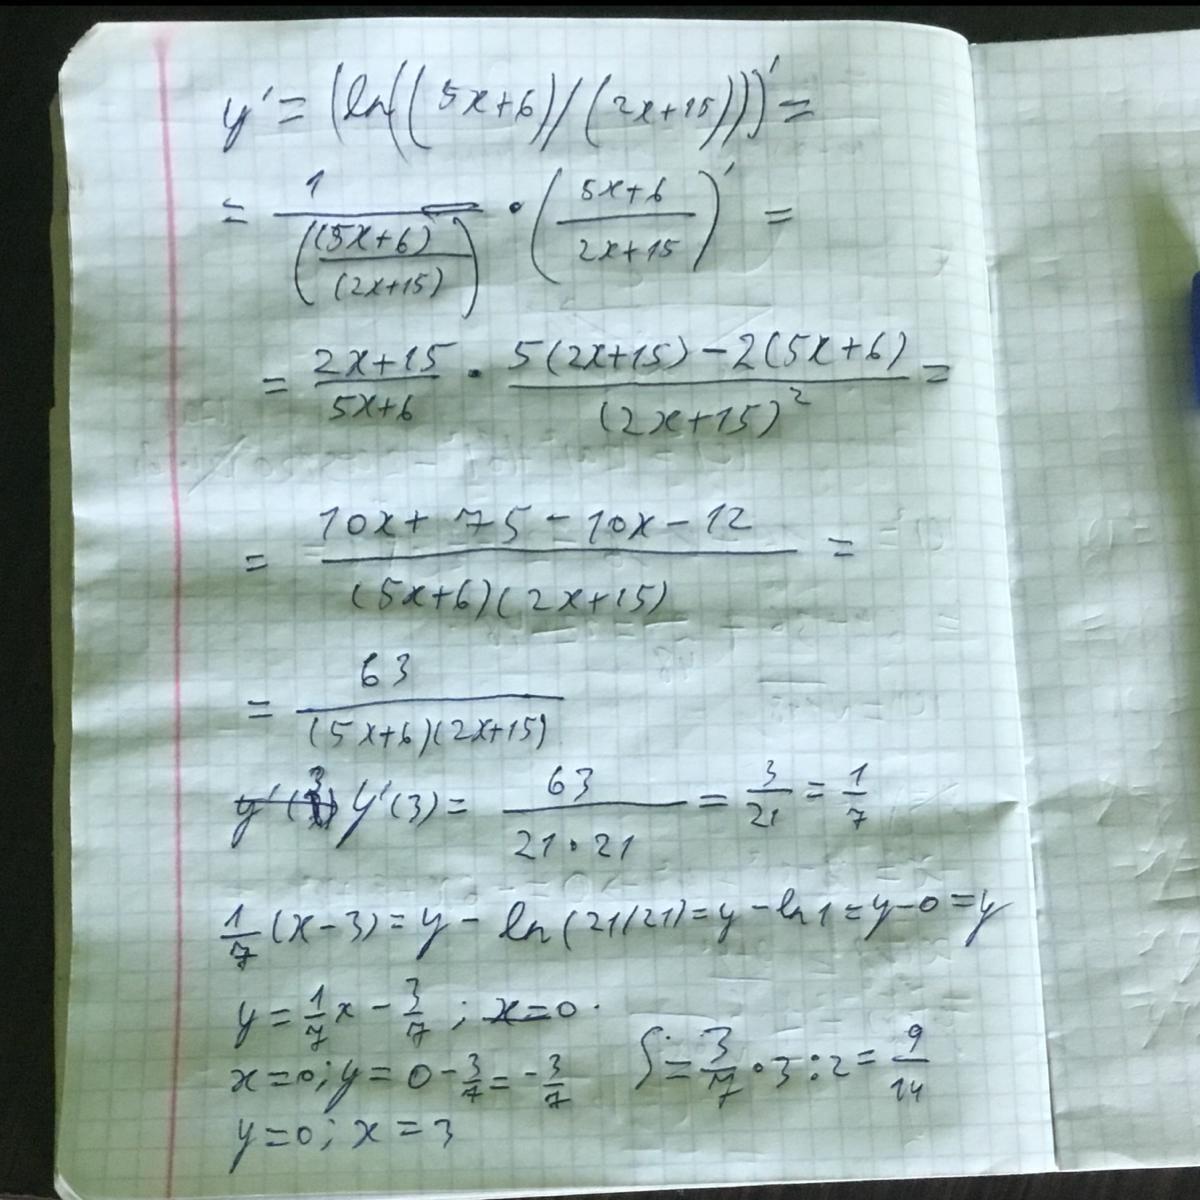 y' = (ln((5x+6)/(2x+15)))' =
= 1/((5x+6)/(2x+15)) · ((5x+6)/(2x+15))' =
= (2x+15)/(5x+6) · (5(2x+15)-2(5x+6))/(2x+15)² =
= (10x+75-10x-12)/((5x+6)(2x+15)) =
= 63/((5x+6)(2x+15))
y'(3) = 63/(21·21) = 3/21 = 1/7
1/7(x-3) = y - ln(21/21) = y - ln1 = y-0 = y
y = 1/7x - 3/7; x=0.
x=0; y = 0 - 3/7 = -3/7
y=0; x = 3
S = 3/7·3:2 = 9/14